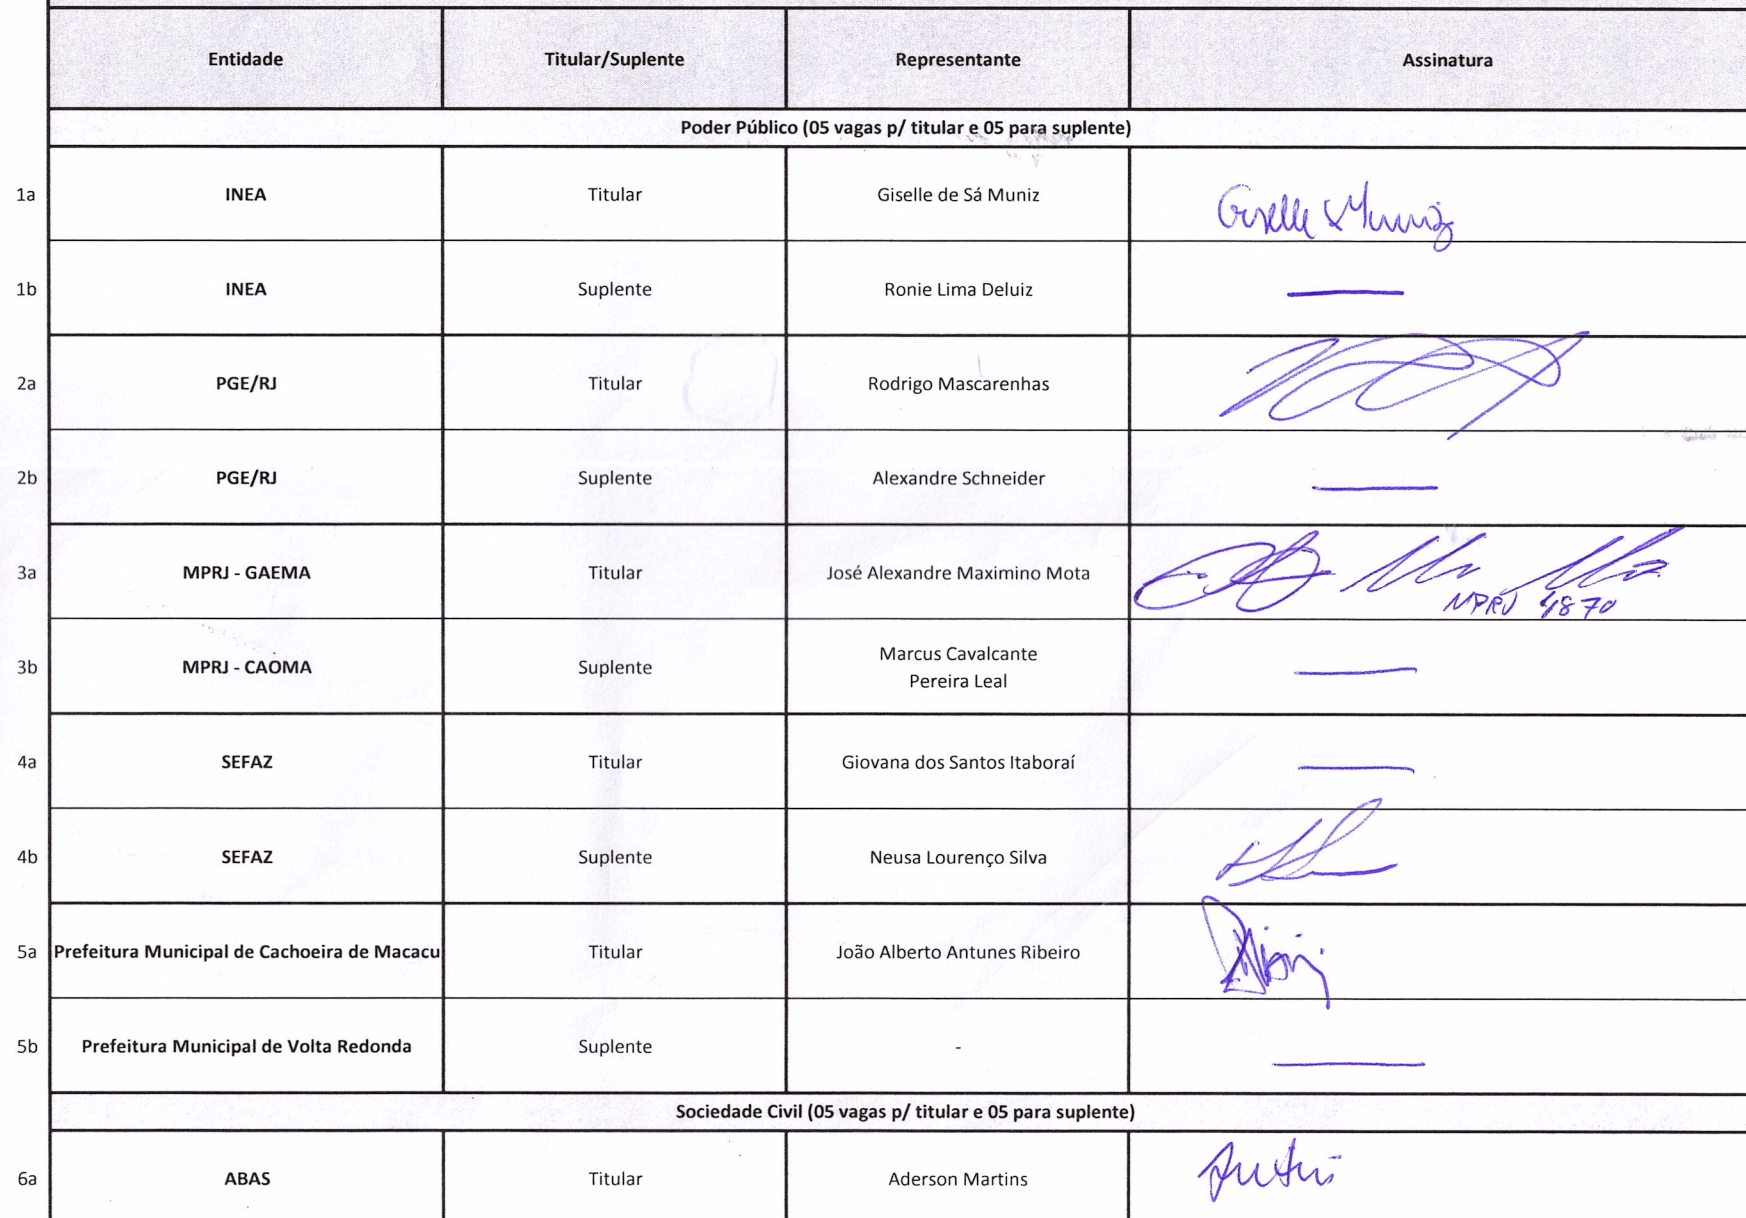 Entidade Titular/Suplente Representante Assinatura
Poder Público (05 vagas p/ titular e 05 para suplente)
1a INEA Titular Giselle de Sá Muniz Giselle Muniz
1b INEA Suplente Ronie Lima Deluiz
2a PGE/RJ Titular Rodrigo Mascarenhas
2b PGE/RJ Suplente Alexandre Schneider
3a MPRJ - GAEMA Titular José Alexandre Maximino Mota
MPRJ 4870
3b MPRJ - CAOMA Suplente Marcus Cavalcante
Pereira Leal
4a SEFAZ Titular Giovana dos Santos Itaboraí
4b SEFAZ Suplente Neusa Lourenço Silva
5a Prefeitura Municipal de Cachoeira de Macacu Titular João Alberto Antunes Ribeiro
5b Prefeitura Municipal de Volta Redonda Suplente -
Sociedade Civil (05 vagas p/ titular e 05 para suplente)
6a ABAS Titular Aderson Martins